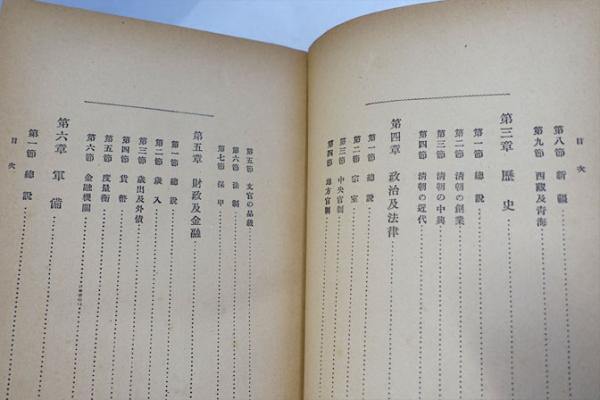 目次
第八節 新疆
第九節 西藏及青海
第三章 歷史
第一節 總說
第二節 清朝の創業
第三節 清朝の中興
第四節 清朝の近代
第四章 政治及法律
第一節 總說
第二節 宗室
第三節 中央官制
第四節 地方官制
第五節 文官の品級
第六節 法制
第七節 保甲
第五章 財政及金融
第一節 總說
第二節 歲入
第三節 歲出及外債
第四節 貨幣
第五節 度量衡
第六節 金融機關
第六章 軍備
第一節 總說
目次